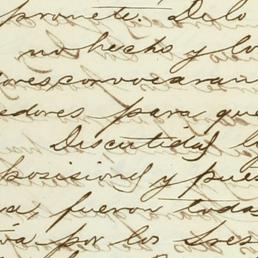 pronete. De lo
no hecho y lo
ores convocaran
edores para que
Discutidas l
posiciones y pues
na, fueron todas
va por los Sres